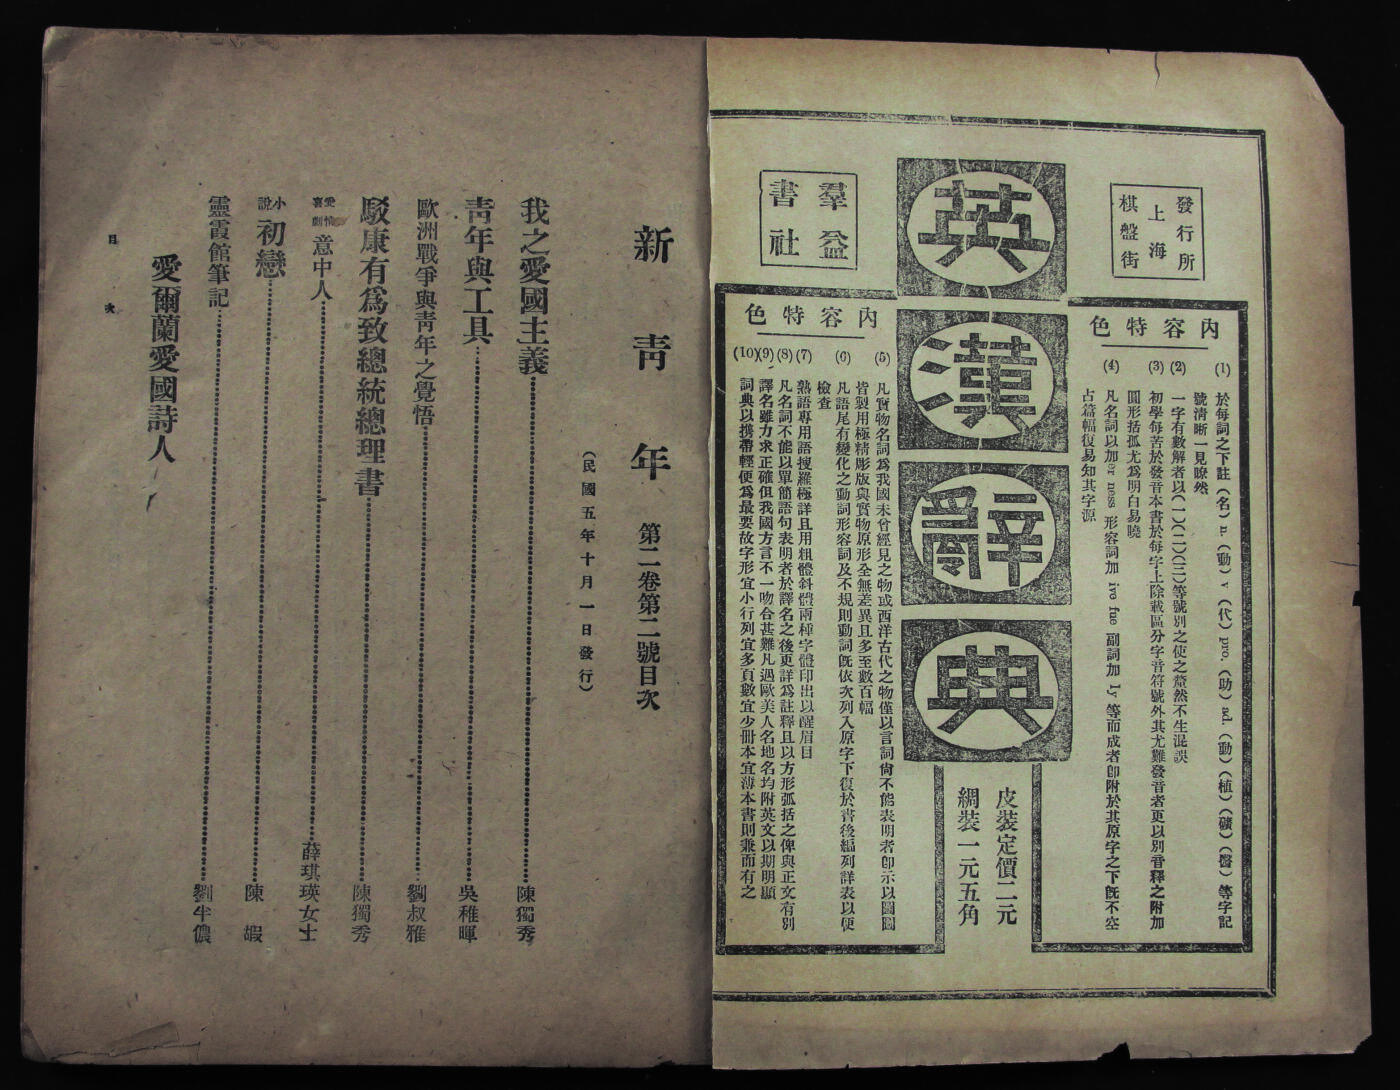 發行所
上海
棋盤街
英漢辭典
羣益
書社
內容特色
(1)於每詞之下註(名)n.(動)v(代)pro.(助)ad.(動)(植)(礦)(醫)等字記
號清晰一見瞭然
(2)一字有數解者以(一)(二)(三)等號別之使之釐然不生混誤
(3)初學每苦於發音本書於每字上除載區分字音符號外其尤難發音者更以別音釋之附加
圓形括孤尤爲明白易曉
(4)凡名詞以加er ness 形容詞加 ive fue 副詞加 ly 等而成者卽附於其原字之下旣不空
占篇幅復易知其字源
皮裝定價二元
綢裝一元五角
內容特色
(5)凡實物名詞爲我國未曾經見之物或西洋古代之物僅以言詞尙不能表明者卽示以圖圖
皆製用極精彫版與實物原形全無差異且多至數百幅
(6)凡語尾有變化之動詞形容詞及不規則動詞旣依次列入原字下復於書後編列詳表以便
檢查
(7)熟語專用語搜羅極詳且用粗體斜體兩種字體印出以醒眉目
(8)凡名詞不能以單簡語句表明者於譯名之後更詳爲註釋且以方形弧括之俾與正文有別
(9)譯名雖力求正確但我國方言不一吻合甚難凡遇歐美人名地名均附英文以期明顯
(10)詞典以携帶輕便爲最要故字形宜小行列宜多頁數宜少冊本宜薄本書則兼而有之
新青年 第二卷第二號目次
(民國五年十月一日發行)
我之愛國主義 陳獨秀
靑年與工具 吳稚暉
歐洲戰爭與靑年之覺悟 劉叔雅
駁康有爲致總統總理書 陳獨秀
愛情喜劇 意中人 薛琪瑛女士
小說 初戀 陳嘏
靈霞館筆記 劉半儂
愛爾蘭愛國詩人
目次